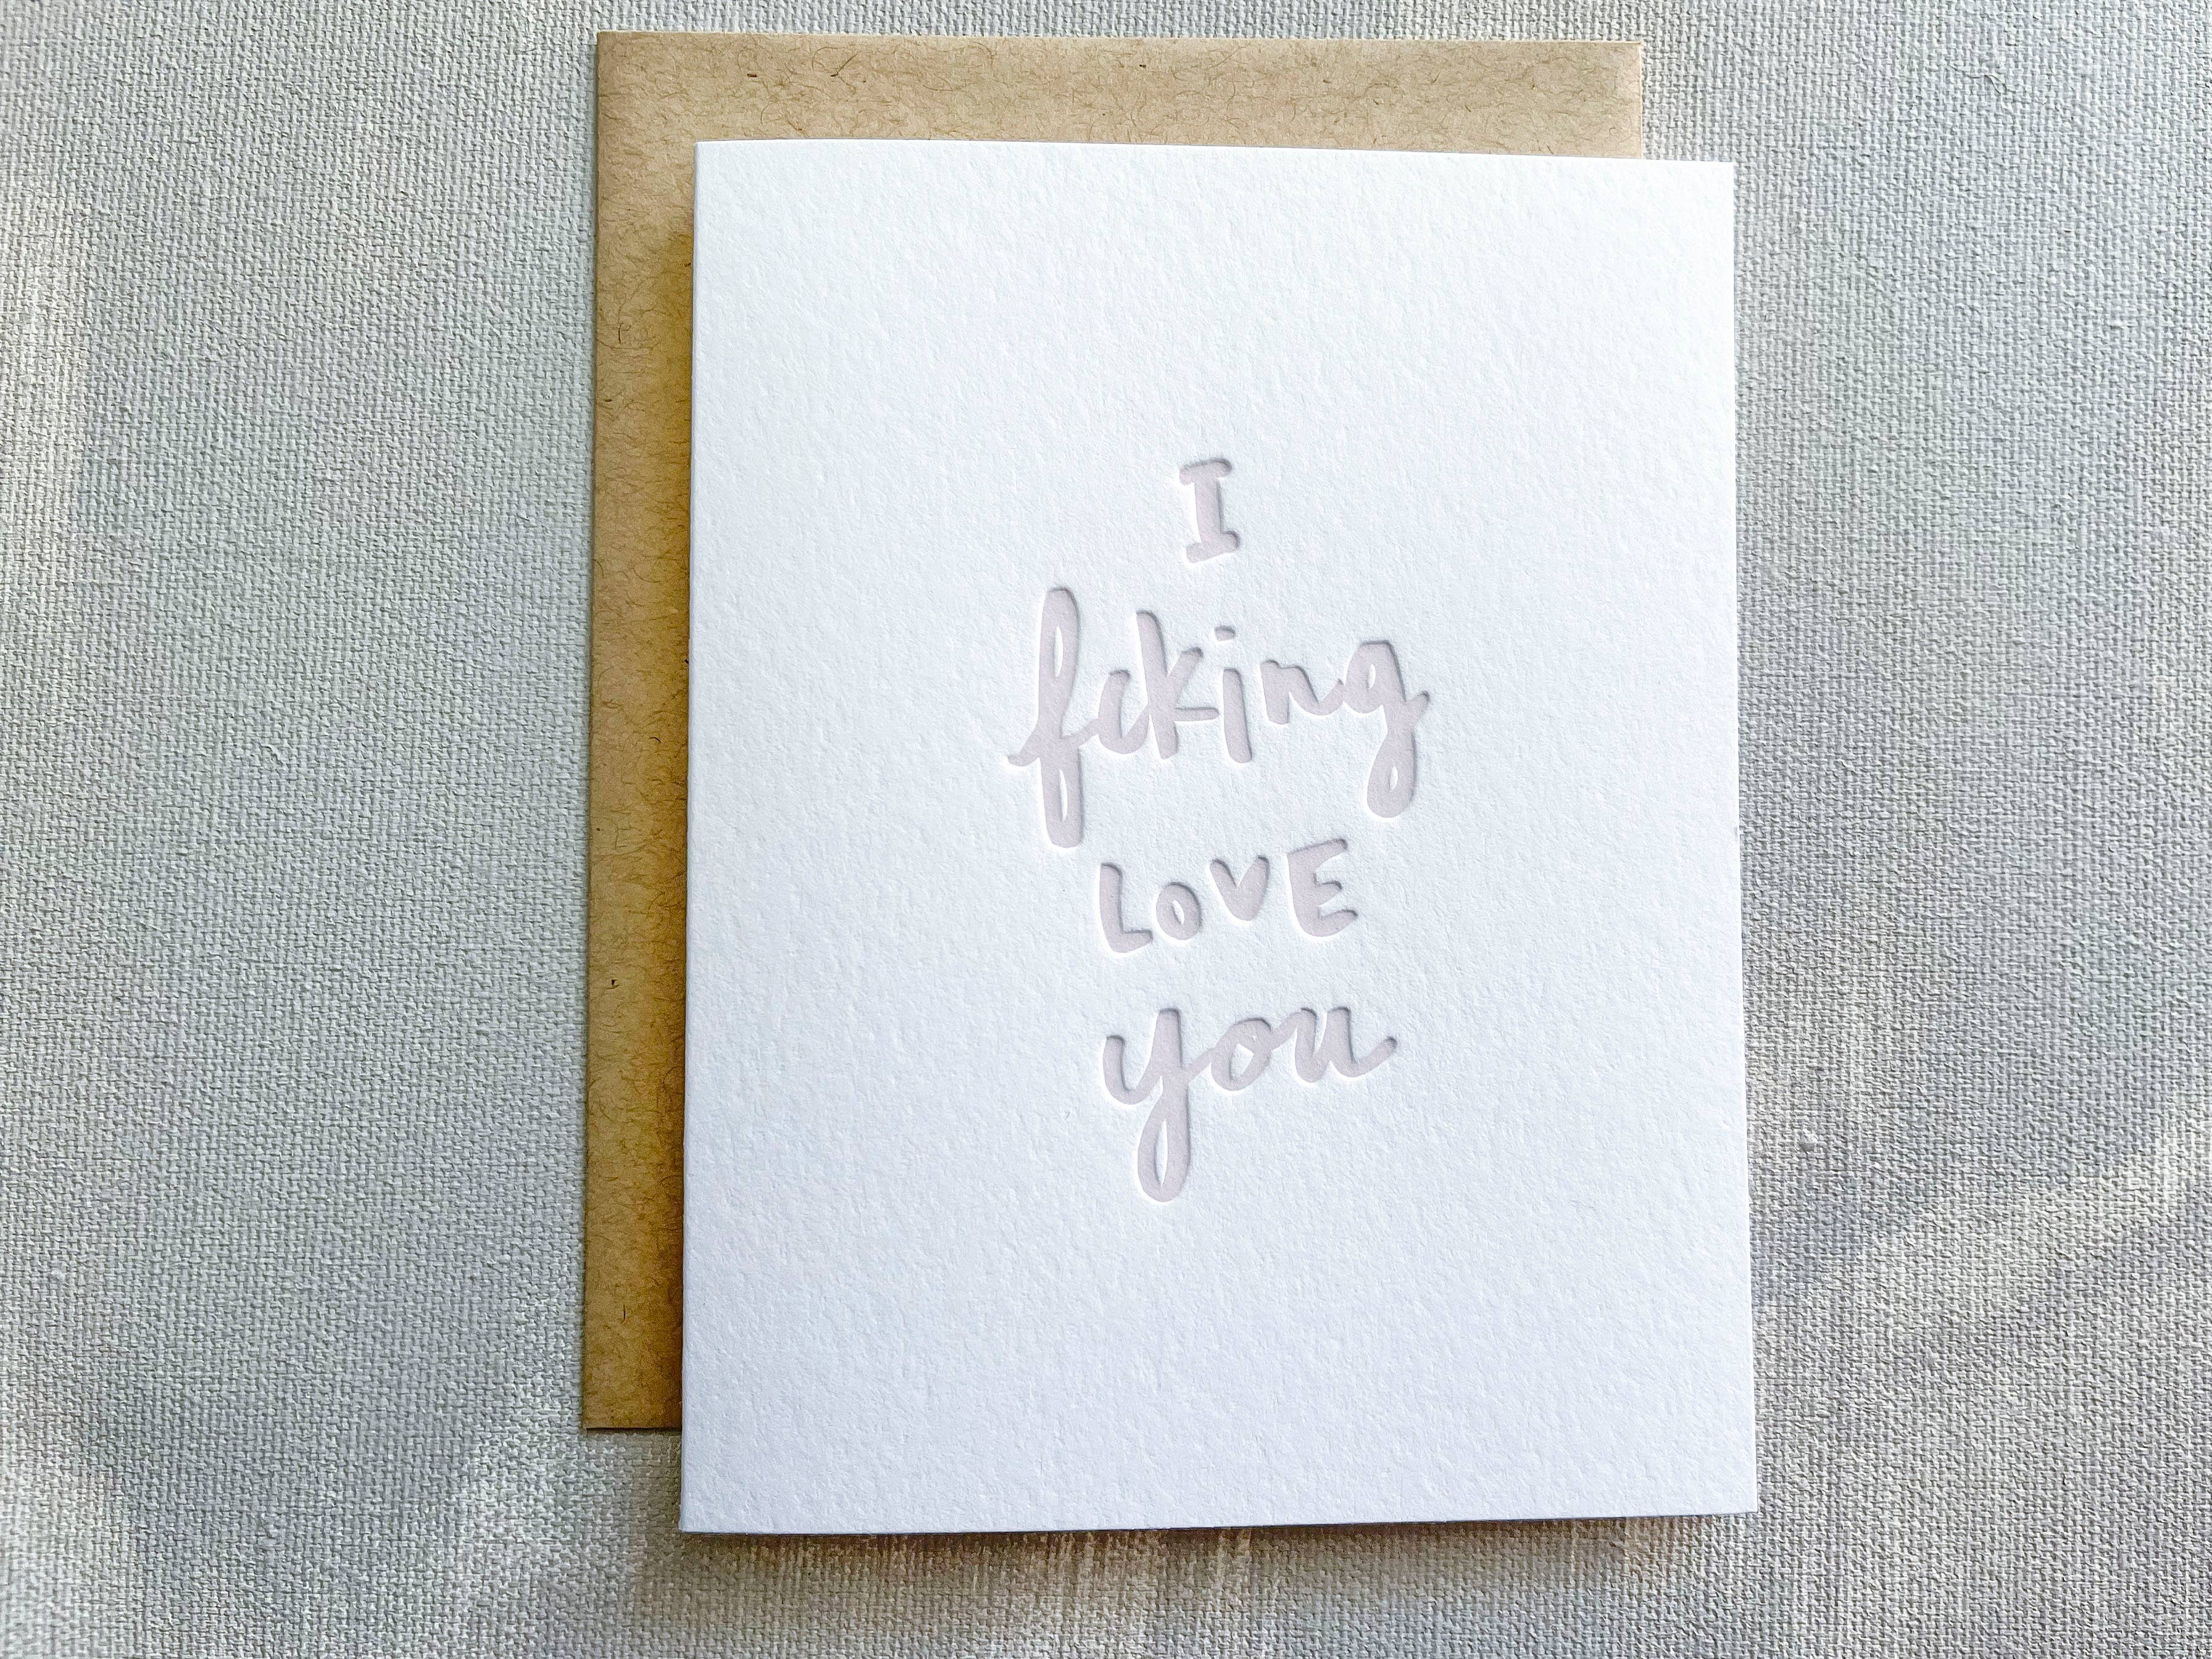 I
fcking
LOVE
you